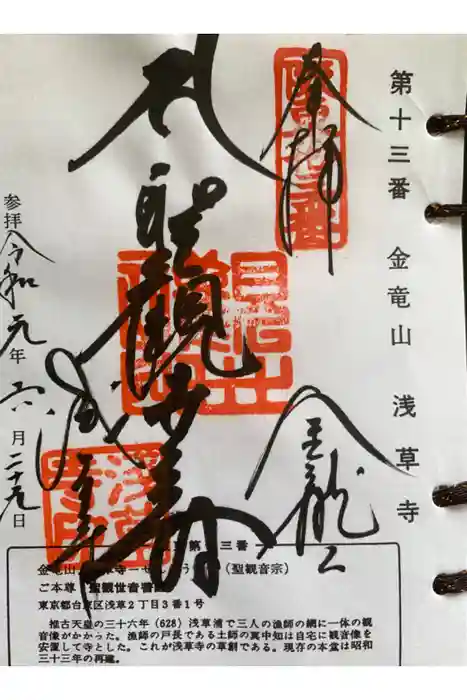 第十三番　金竜山　浅草寺
奉拝
金龍山
聖観世音
浅草寺
参拝 令和元年六月二十九日
金竜山
（聖観音宗）
ご本尊　聖観世音菩薩
東京都台東区浅草２丁目３番１号
推古天皇の三十六年（628）浅草浦で三人の漁師の網に一体の観
音像がかかった。漁師の戸長である土師の真中知は自宅に観音像を
安置して寺とした。これが浅草寺の草創である。現存の本堂は昭和
三十三年の再建。